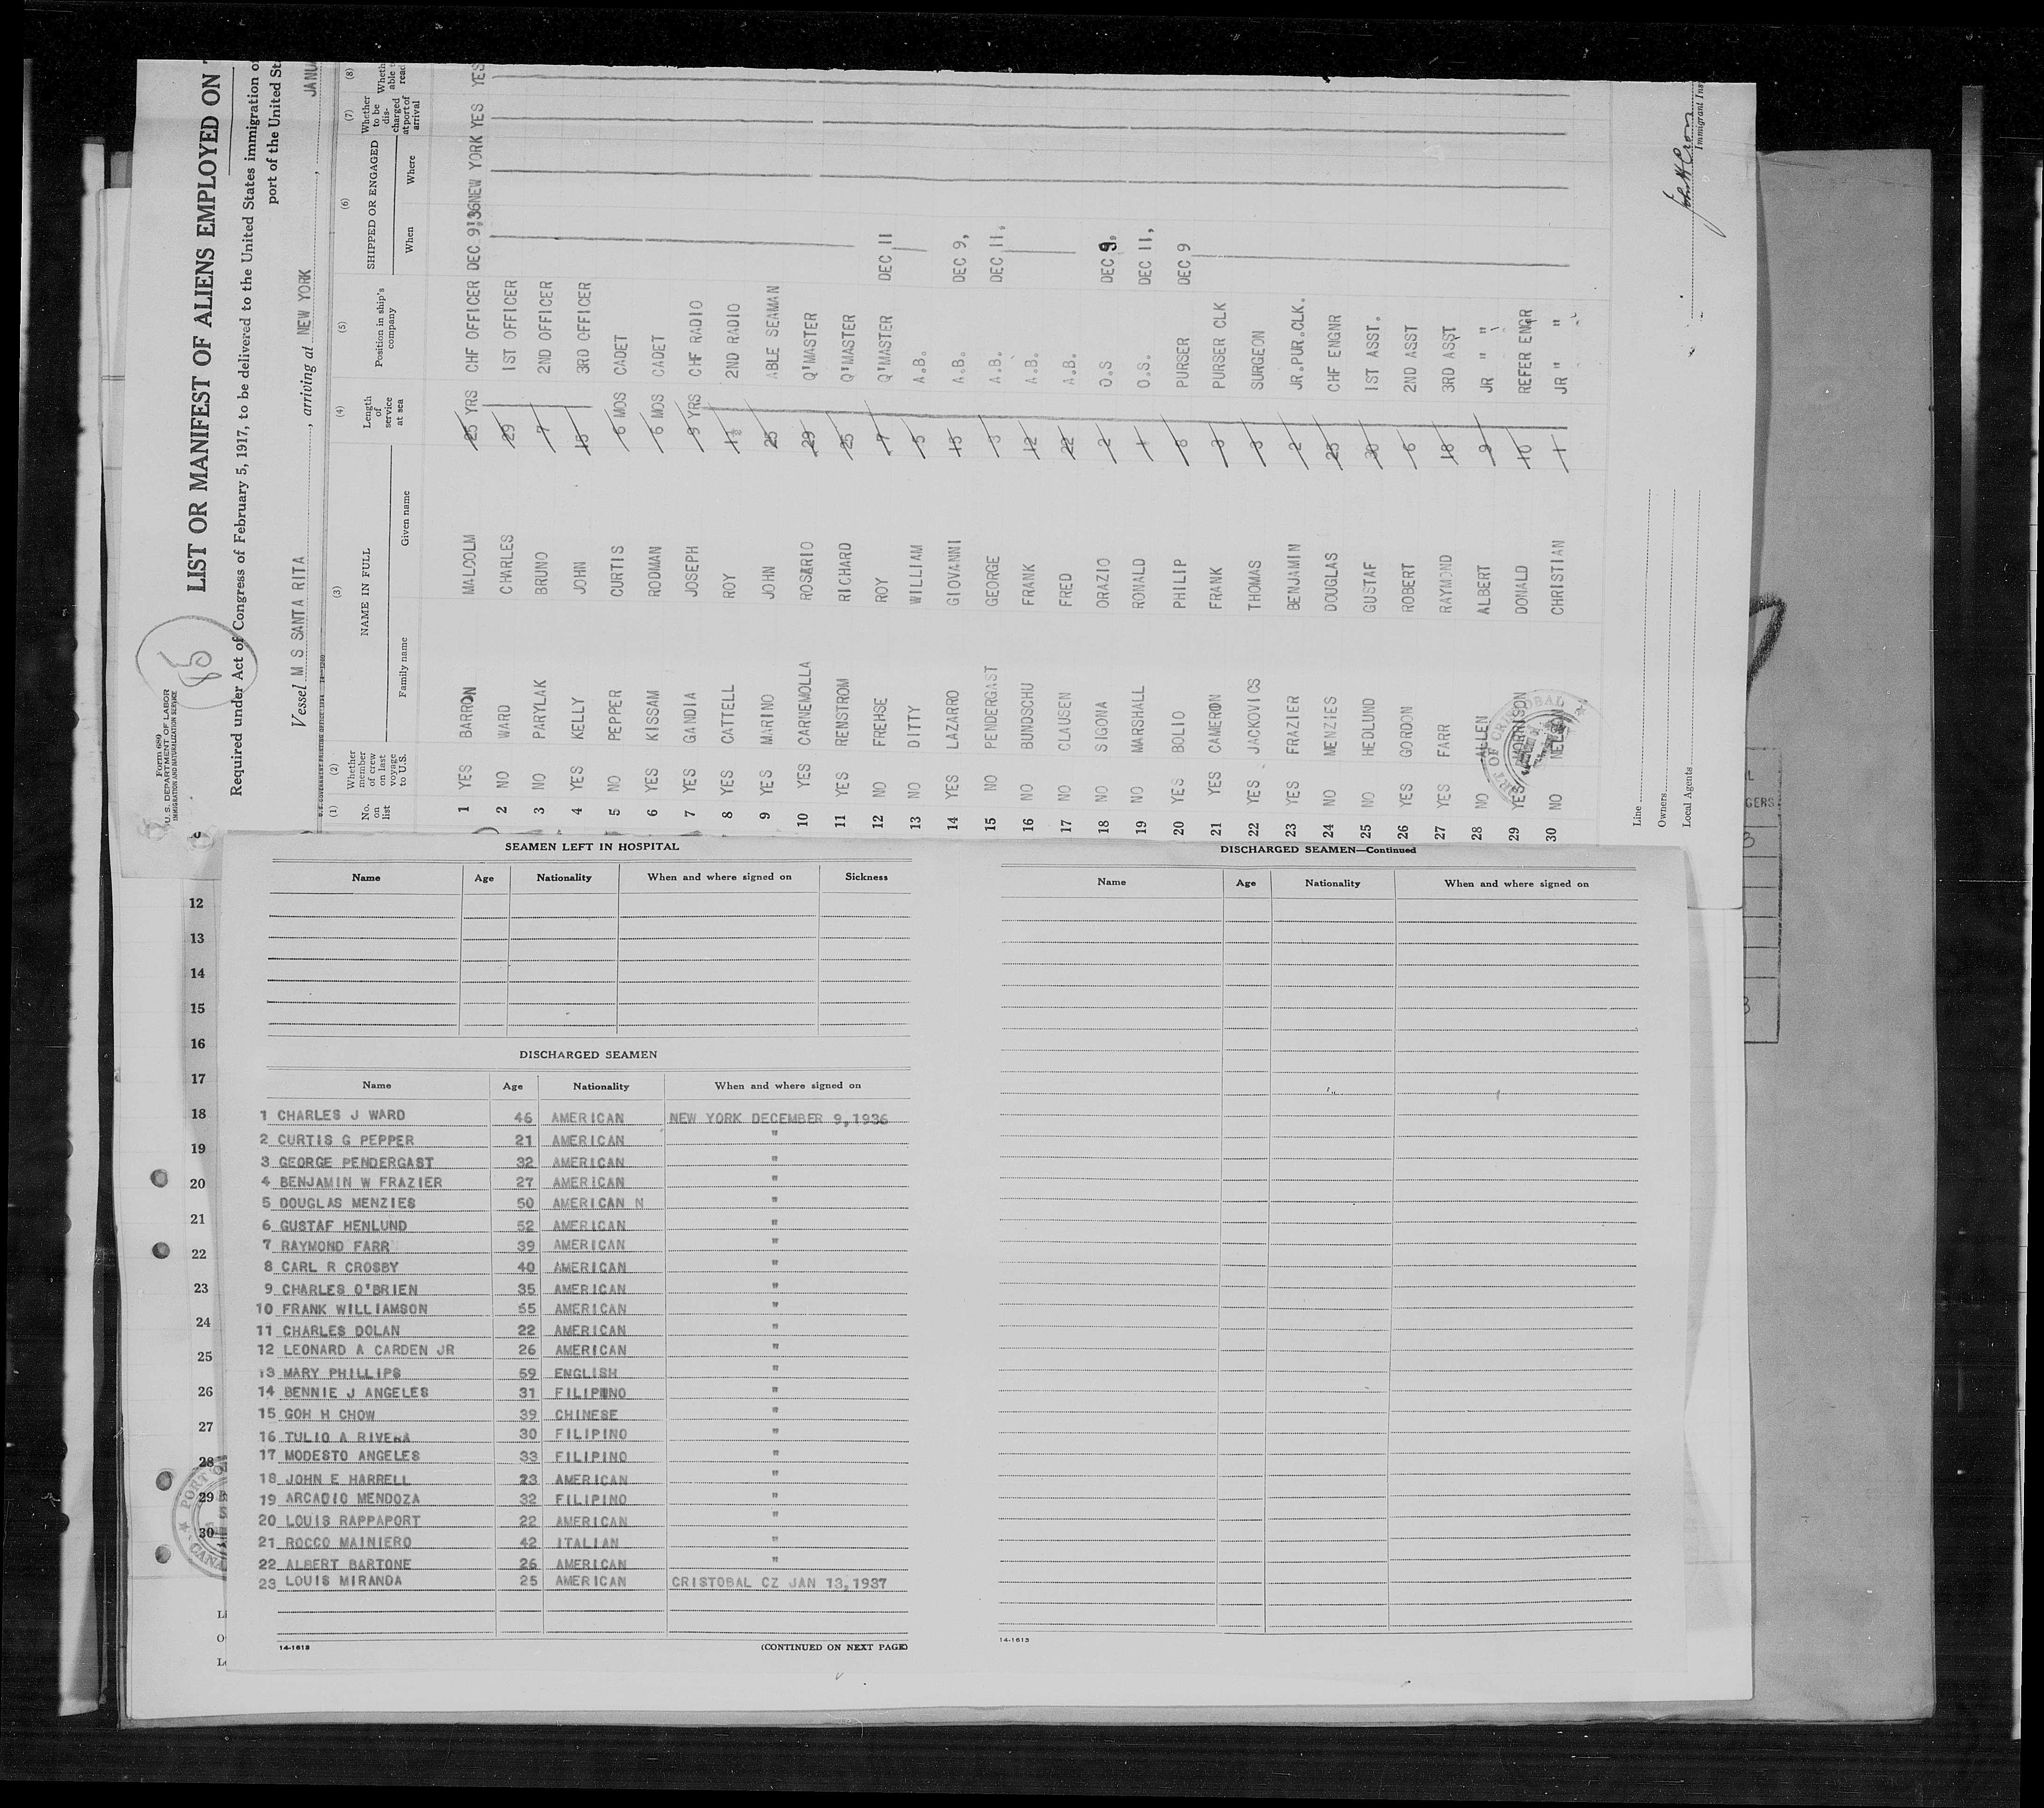 Form 689
U. S. DEPARTMENT OF LABOR
IMMIGRATION AND NATURALIZATION SERVICE
85
LIST OR MANIFEST OF ALIENS EMPLOYED ON
Required under Act of Congress of February 5, 1917, to be delivered to the United States immigration
port of the United St
Vessel M S SANTA RITA, arriving at NEW YORK, JANU
(1) (2) (3) (4) (5) (6) (7) (8)
No. on list
Whether member of crew on last voyage to U.S.
NAME IN FULL
Family name Given name
Length of service at sea
Position in ship's company
SHIPPED OR ENGAGED
When Where
Whether to be discharged at port of arrival
Wheth able read
1 YES BARRON MALCOLM 25 YRS CHF OFFICER DEC 9,136 NEW YORK YES YES
2 NO WARD CHARLES 29 1ST OFFICER
3 NO PARYLAK BRUNO 7 2ND OFFICER
4 YES KELLY JOHN 15 3RD OFFICER
5 NO PEPPER CURTIS 6 MOS CADET
6 YES KISSAM RODMAN 6 MOS CADET
7 YES GANDIA JOSEPH 9 YRS CHF RADIO
8 YES CATTELL ROY 2ND RADIO
9 YES MARINO JOHN 25 ABLE SEAMAN
10 YES CARNEMOLLA ROSARIO 29 Q'MASTER
11 YES RENSTROM RICHARD 25 Q'MASTER
12 NO FREHSE ROY 7 Q'MASTER DEC 11
13 NO DITTY WILLIAM 5 A.B.
14 YES LAZARRO GIOVANNI 15 A.B. DEC 9,
15 NO PENDERGAST GEORGE 3 A.B. DEC 11,
16 NO BUNDSCHU FRANK 12 A.B.
17 NO CLAUSEN FRED 22 A.B.
18 NO SIGONA ORAZIO 2 O.S DEC 9,
19 NO MARSHALL RONALD 1 O.S. DEC 11,
20 YES BOLIO PHILIP 8 PURSER DEC 9
21 YES CAMERON FRANK 3 PURSER CLK
22 YES JACKOVICS THOMAS 3 SURGEON
23 YES FRAZIER BENJAMIN 2 JR.PUR.CLK.
24 NO MENZIES DOUGLAS 25 CHF ENGNR
25 NO HEDLUND GUSTAF 30 1ST ASST.
26 YES GORDON ROBERT 6 2ND ASST
27 YES FARR RAYMOND 18 3RD ASST
28 NO ALLEN ALBERT 9 JR " "
29 YES MORRISON DONALD 10 REFER ENGR
30 NO NELSON CHRISTIAN 1 JR " "
Line
Owners
Local Agents
Immigrant Ins
12
13
14
15
16
17
18
19
20
21
22
23
24
25
26
27
28
29
30
SEAMEN LEFT IN HOSPITAL
Name Age Nationality When and where signed on Sickness
DISCHARGED SEAMEN
Name Age Nationality When and where signed on
1 CHARLES J WARD 46 AMERICAN NEW YORK DECEMBER 9,1936
2 CURTIS G PEPPER 21 AMERICAN "
3 GEORGE PENDERGAST 32 AMERICAN "
4 BENJAMIN W FRAZIER 27 AMERICAN "
5 DOUGLAS MENZIES 50 AMERICAN N "
6 GUSTAF HENLUND 52 AMERICAN "
7 RAYMOND FARR 39 AMERICAN "
8 CARL R CROSBY 40 AMERICAN "
9 CHARLES O'BRIEN 35 AMERICAN "
10 FRANK WILLIAMSON 55 AMERICAN "
11 CHARLES DOLAN 22 AMERICAN "
12 LEONARD A CARDEN JR 26 AMERICAN "
13 MARY PHILLIPS 59 ENGLISH "
14 BENNIE J ANGELES 31 FILIPINO "
15 GOH H CHOW 39 CHINESE "
16 TULIO A RIVERA 30 FILIPINO "
17 MODESTO ANGELES 33 FILIPINO "
18 JOHN E HARRELL 23 AMERICAN "
19 ARCADIO MENDOZA 32 FILIPINO "
20 LOUIS RAPPAPORT 22 AMERICAN "
21 ROCCO MAINIERO 42 ITALIAN "
22 ALBERT BARTONE 26 AMERICAN "
23 LOUIS MIRANDA 25 AMERICAN CRISTOBAL CZ JAN 13,1937
14-1613 (CONTINUED ON NEXT PAGE)
DISCHARGED SEAMEN—Continued
Name Age Nationality When and where signed on
14-1613
GERS